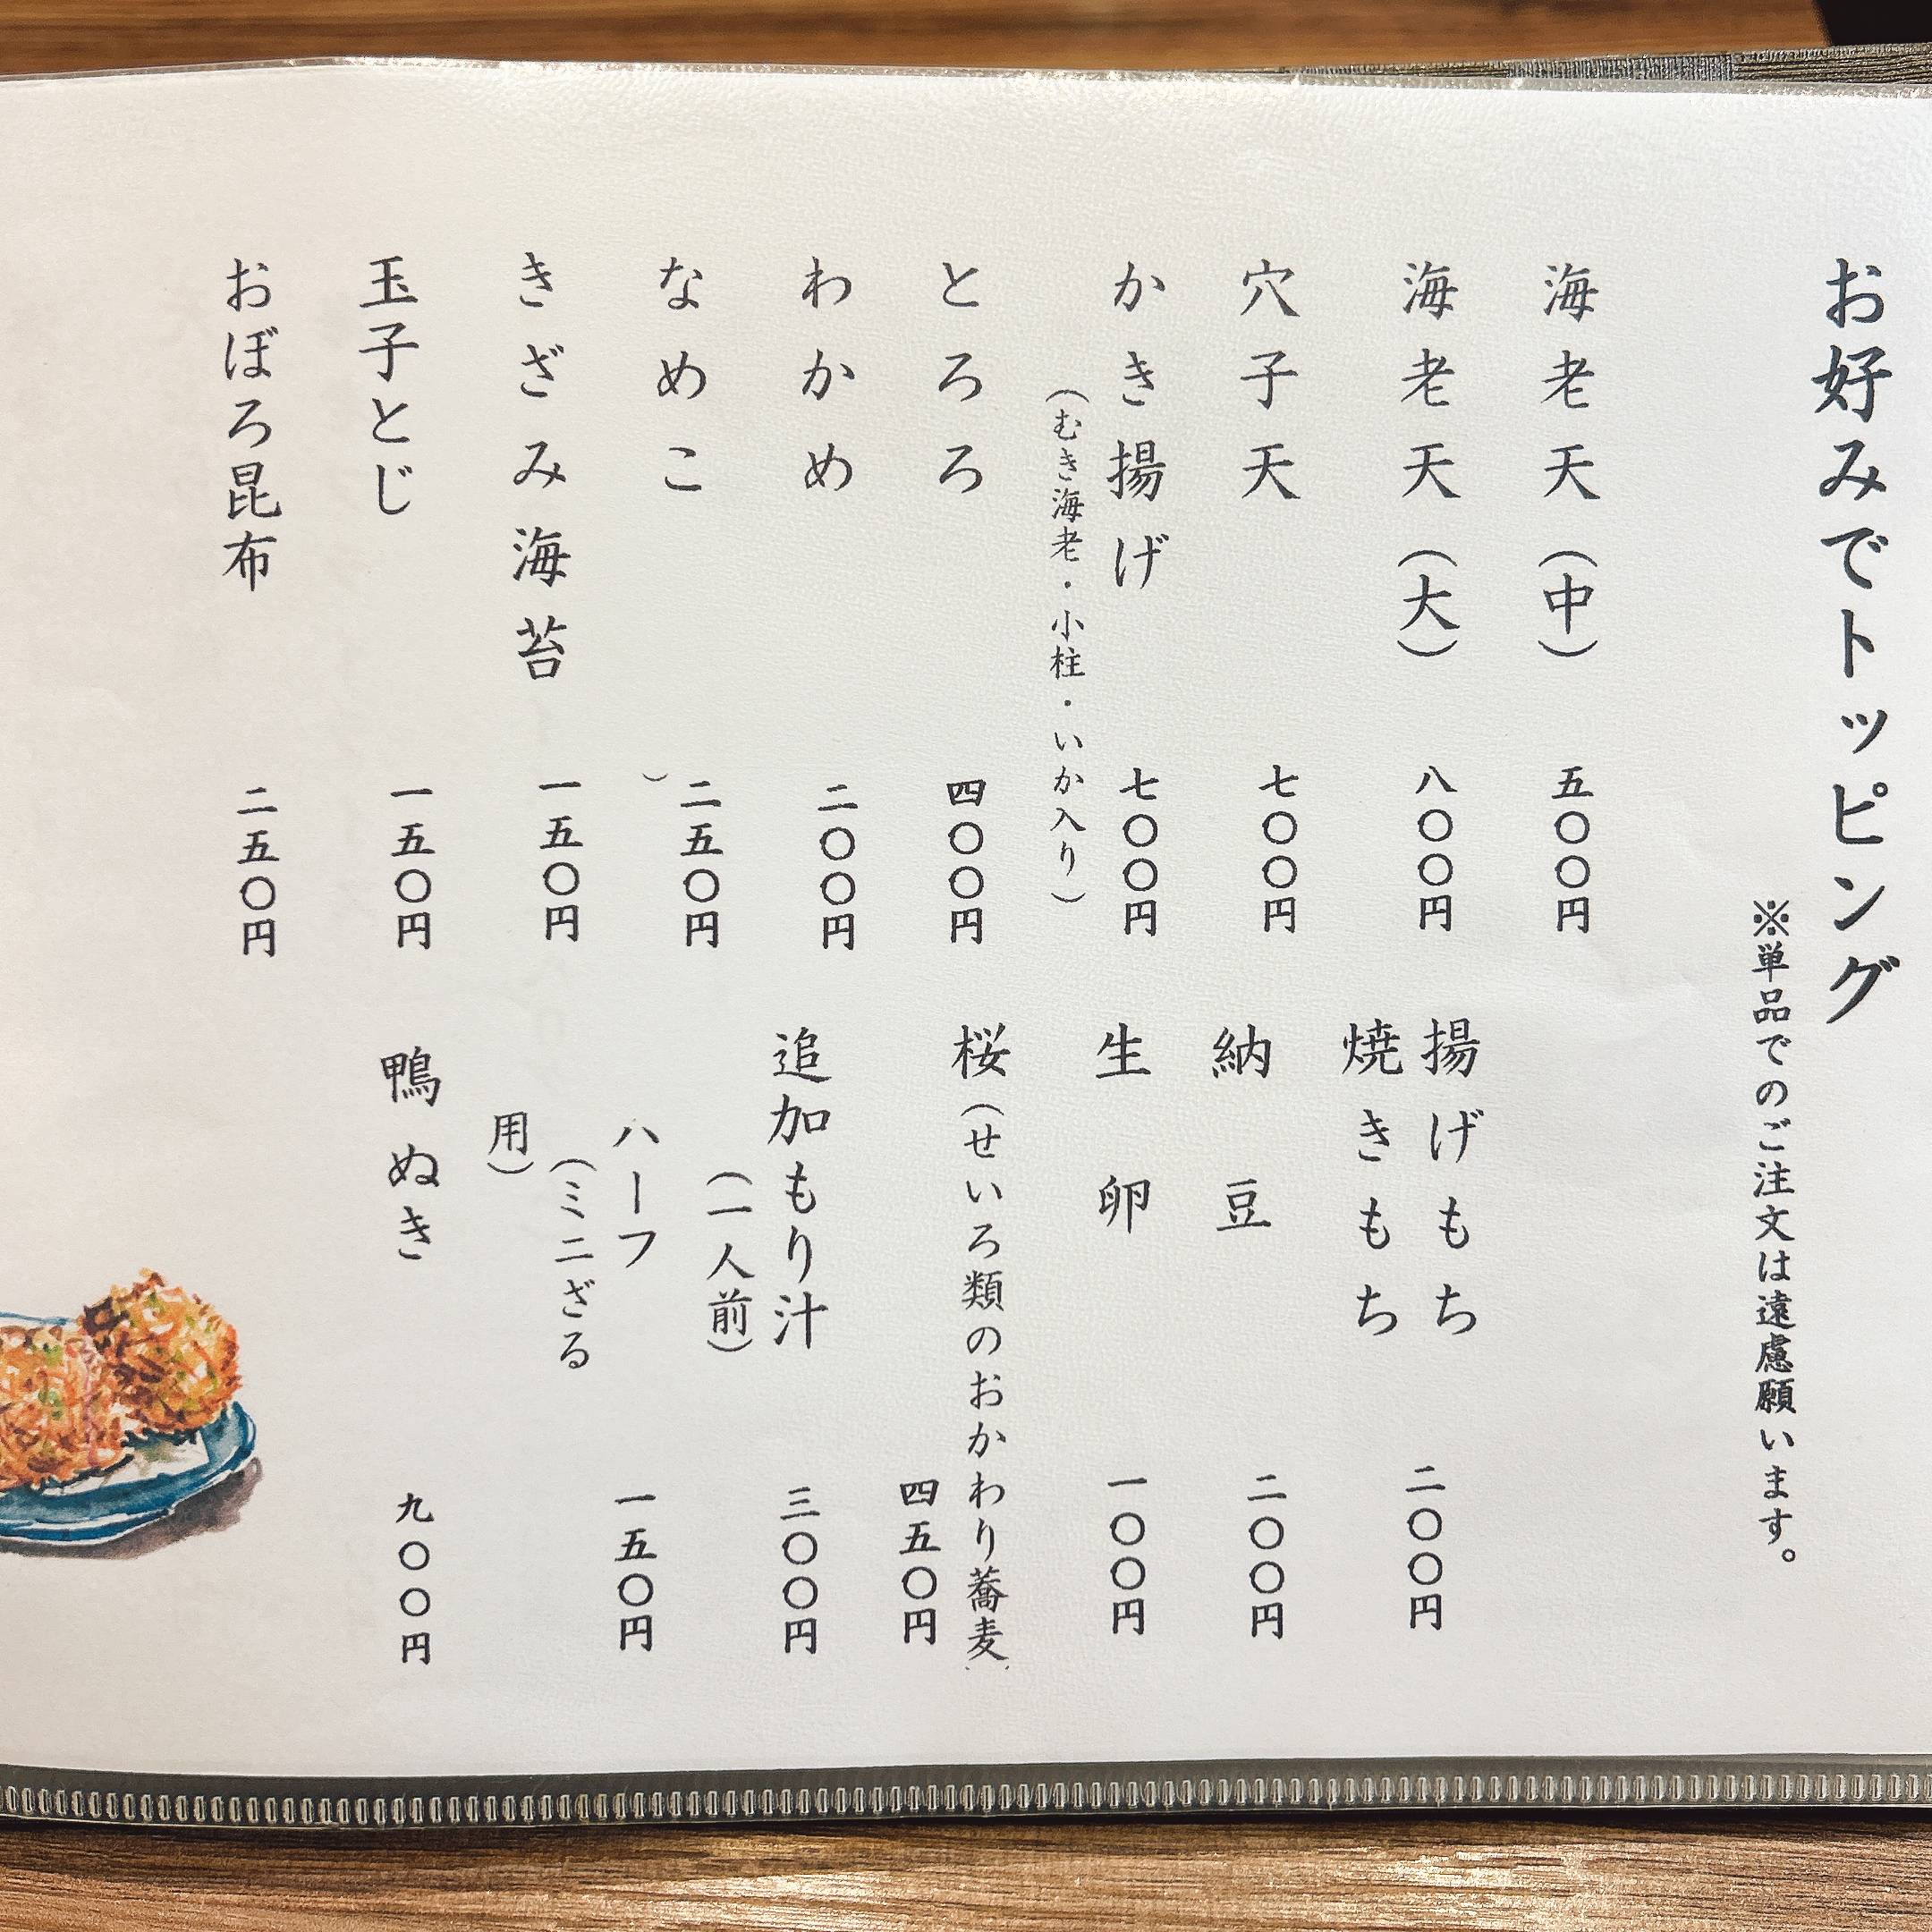 お好みでトッピング
※単品でのご注文は遠慮願います。
海老天（中） 五〇〇円
海老天（大） 八〇〇円
穴子天 七〇〇円
かき揚げ 七〇〇円
（むき海老・小柱・いか入り）
とろろ 四〇〇円
わかめ 二〇〇円
なめこ 二五〇円
）
きざみ海苔 一五〇円
玉子とじ 一五〇円
おぼろ昆布 二五〇円
揚げもち
焼きもち 二〇〇円
納豆 二〇〇円
生卵 一〇〇円
桜（せいろ類のおかわり蕎麦）
四五〇円
追加もり汁 三〇〇円
（一人前）
ハーフ 一五〇円
（ミニざる
用）
鴨ぬき 九〇〇円